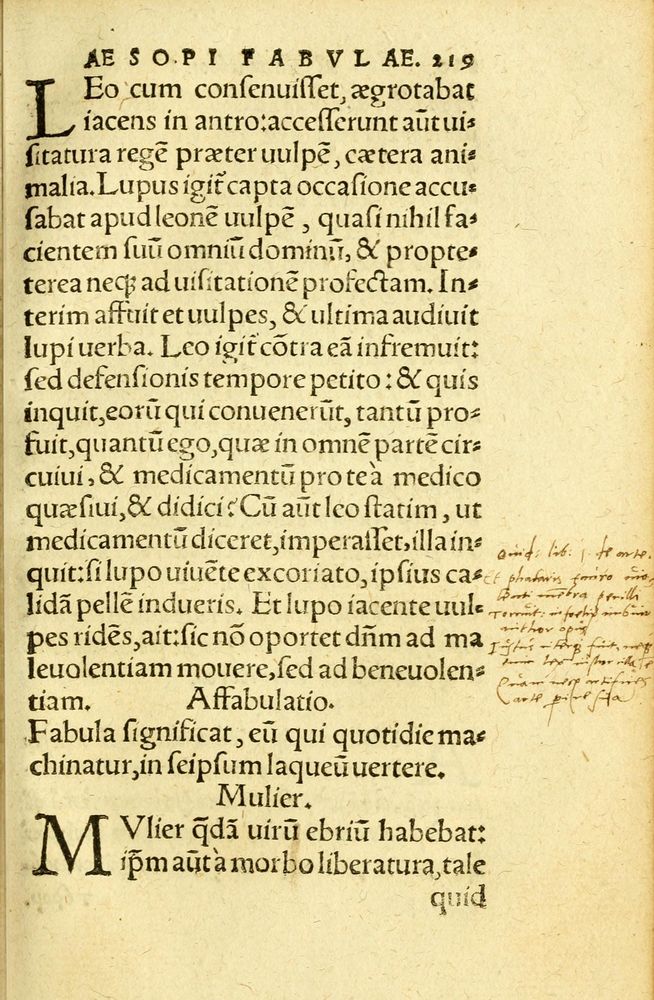 AE S O P I F A B V L AE. 219
LEo cum consenuisset, ægrotabat
iacens in antro: accesserunt aūt ui-
sitatura regē præter uulpē, cætera ani-
malia. Lupus igit᷑ capta occasione accu-
sabat apud leonē uulpē, quasi nihil fa-
cientem suū omniū dominū, & propte-
terea neq; ad uisitationē profectam. In-
terim affuit et uulpes, & ultima audiuit
lupi uerba. Leo igit᷑ cōtra eā infremuit:
sed defensionis tempore petito: & quis
inquit, eorū qui conuenerūt, tantū pro-
fuit, quantū ego, quæ in omnē partē cir-
cuiui, & medicamentū pro te à medico
quæsiui, & didici? Cū aūt leo statim, ut
medicamentū diceret, imperasset, illa in-
quit: si lupo uiuēte excoriato, ipsius ca-
lidā pellē indueris. Et lupo iacente uul-
pes ridēs, ait: sic nō oportet dn̄m ad ma
leuolentiam mouere, sed ad beneuolen-
tiam. Affabulatio.
Fabula significat, eū qui quotidie ma-
chinatur, in seipsum laqueū uertere.
Mulier.
MVlier q̄dā uirū ebriū habebat:
ip̄m aūt à morbo liberatura, tale
quid
Ouid: lib: 1. de arte.
Et phalaris